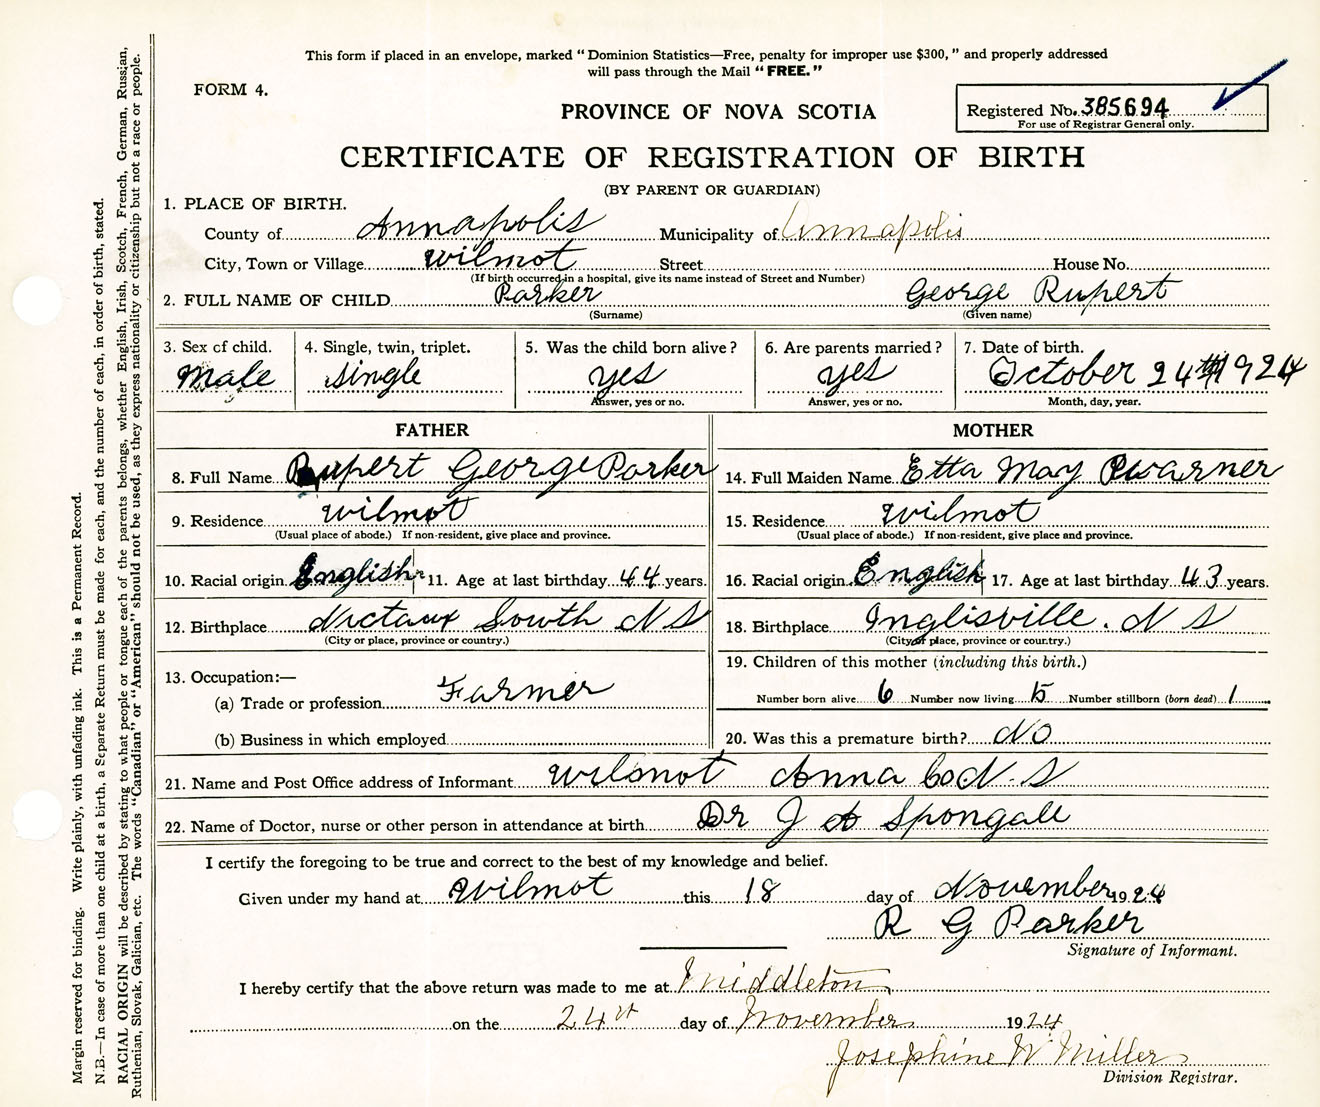 This form if placed in an envelope, marked "Dominion Statistics—Free, penalty for improper use $300," and properly addressed
will pass through the Mail "FREE."
FORM 4.
PROVINCE OF NOVA SCOTIA
Registered No. 385694
For use of Registrar General only.
CERTIFICATE OF REGISTRATION OF BIRTH
(BY PARENT OR GUARDIAN)
1. PLACE OF BIRTH.
County of Annapolis Municipality of Annapolis
City, Town or Village Wilmot Street House No.
(If birth occurred in a hospital, give its name instead of Street and Number)
2. FULL NAME OF CHILD Parker George Rupert
(Surname) (Given name)
3. Sex of child. 4. Single, twin, triplet. 5. Was the child born alive? 6. Are parents married? 7. Date of birth.
Male single yes yes October 24th 1924
Answer, yes or no. Answer, yes or no. Month, day, year.
FATHER MOTHER
8. Full Name Rupert George Parker 14. Full Maiden Name Etta May Warner
9. Residence Wilmot 15. Residence Wilmot
(Usual place of abode.) If non-resident, give place and province. (Usual place of abode.) If non-resident, give place and province.
10. Racial origin English 11. Age at last birthday 44 years. 16. Racial origin English 17. Age at last birthday 43 years.
12. Birthplace Nictaux South N S 18. Birthplace Inglisville. N S
(City or place, province or country.) (City or place, province or country.)
13. Occupation:— 19. Children of this mother (including this birth.)
(a) Trade or profession Farmer Number born alive 6 Number now living 5 Number stillborn (born dead) 1
(b) Business in which employed 20. Was this a premature birth? No
21. Name and Post Office address of Informant Wilmot Anna Co N. S
22. Name of Doctor, nurse or other person in attendance at birth Dr J A Spongale
I certify the foregoing to be true and correct to the best of my knowledge and belief.
Given under my hand at Wilmot this 18 day of November 1924
R G Parker
Signature of Informant.
I hereby certify that the above return was made to me at Middleton
on the 24th day of November 1924
Josephine W Miller
Division Registrar.
Margin reserved for binding. Write plainly, with unfading ink. This is a Permanent Record.
N.B.—In case of more than one child at a birth, a Separate Return must be made for each, and the number of each, in order of birth, stated.
RACIAL ORIGIN will be described by stating to what people or tongue each of the parents belongs, whether English, Irish, Scotch, French, German, Russian,
Ruthenian, Slovak, Galician, etc. The words "Canadian" or "American" should not be used, as they express nationality or citizenship but not a race or people.